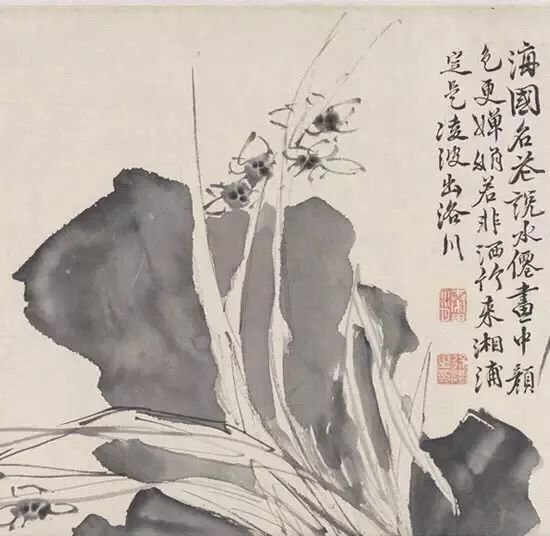 海國名花說水僊畫中顏
色更嬋娟若非洒竹來湘浦
定是凌波出洛川